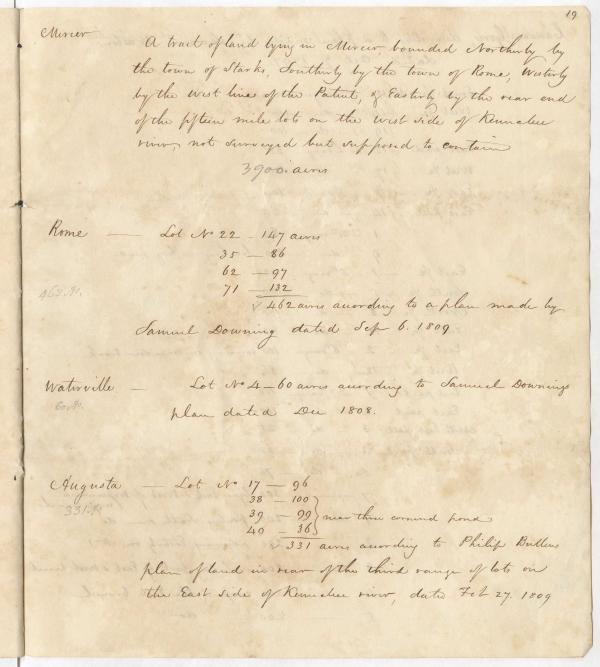 19
Mercer
A tract of land lying in Mercer, bounded Northerly by
the town of Starks, Southerly by the town of Rome, Westerly
by the West line of the Patent, & Easterly by the rear end
of the fifteen mile lots on the west side of Kennebec
river, not surveyed but supposed to contain
3900. acres
Rome — Lot No 22 — 147 acres
35 — 86
62 — 97
71 — 132
462 acres according to a plan made by
Samuel Downing dated Sep 6. 1809
Waterville — Lot No 4 — 60 acres according to Samuel Downings
plan dated Dec 1808.
Augusta — Lot No 17 — 96
331.
38 — 100
39 — 99 } near three cornered pond
40 — 36
331 acres according to Philip Bullens
plan of land in rear of the third range of lots on
the East side of Kennebec river, date Feb 27. 1809